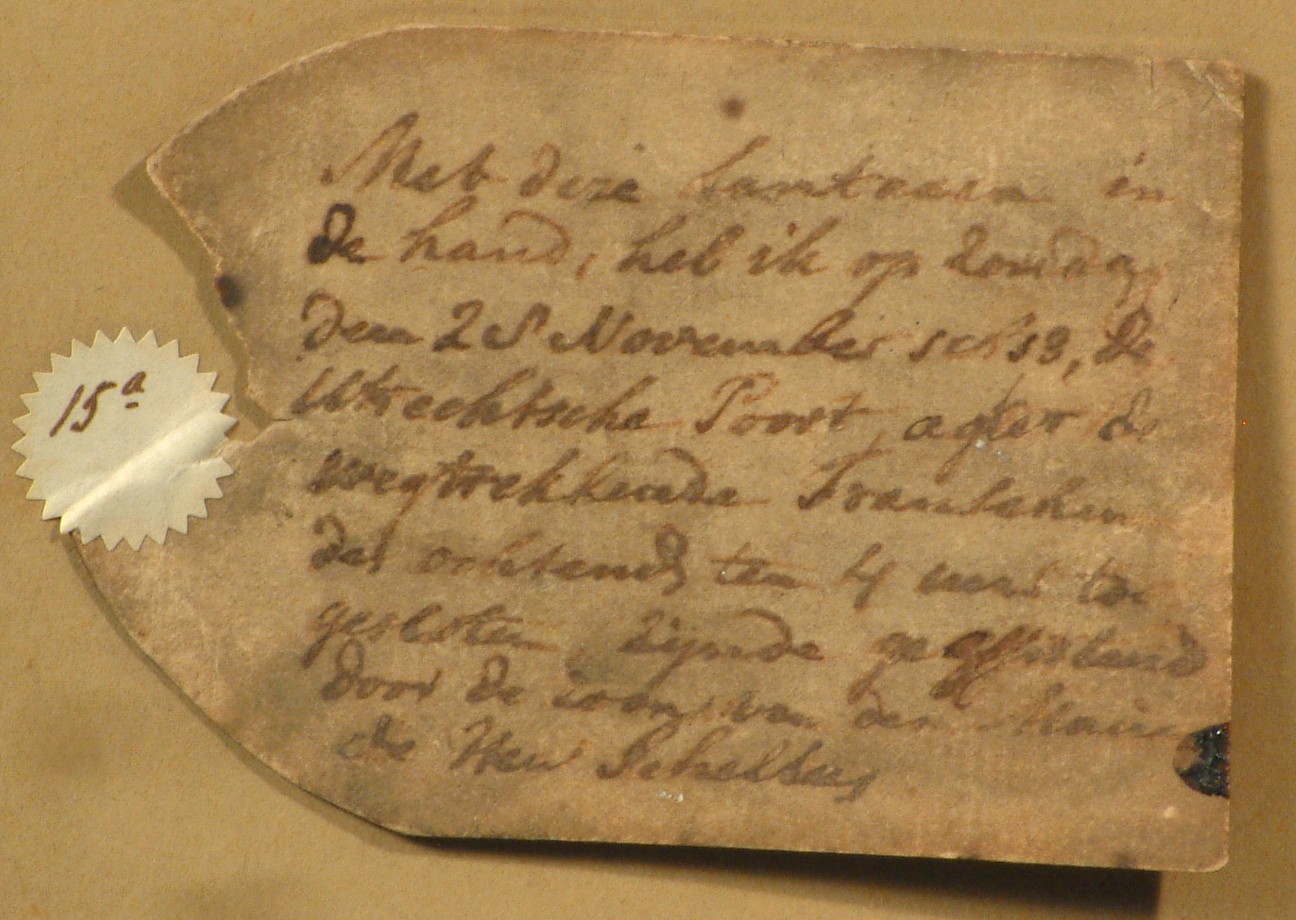 15a
Met deze Lantaarn in
de hand, heb ik op Zondag
den 28 November 1813, de
Utrechtsche Poort, agter de
wegtrekkende Franschen
des ochtends ten 4 uur toe
gesloten zijnde geassisteerd
door de zoon van den Maire
de Heer Schelbus